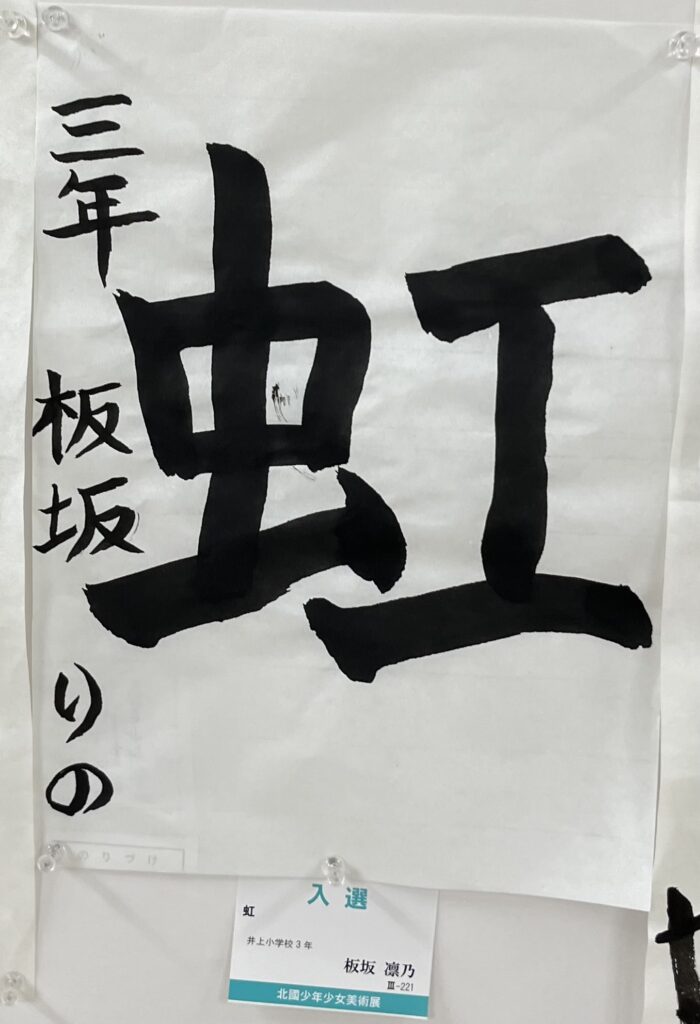 虹
三年 板坂 りの
のりづけ
入選
虹
井上小学校3年
板坂 凛乃
Ⅲ-221
北國少年少女美術展